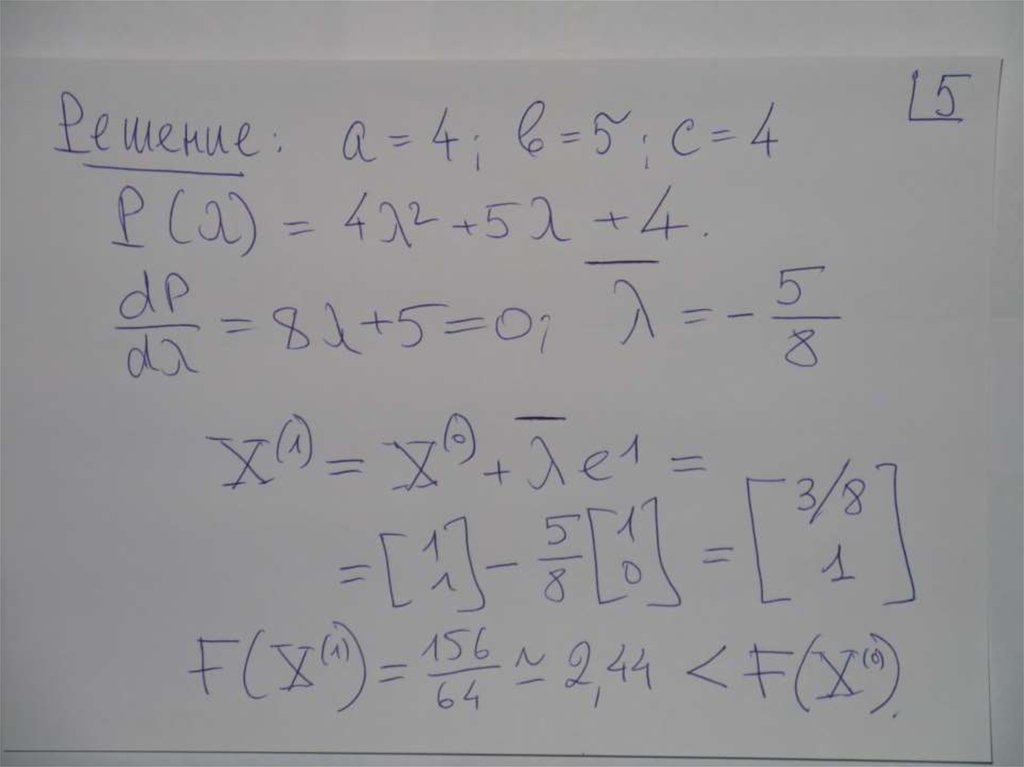 5
Решение: a = 4; b = 5; c = 4
P(λ) = 4λ² + 5λ + 4.
dP/dλ = 8λ + 5 = 0; λ̄ = - 5/8
X⁽¹⁾ = X⁽⁰⁾ + λ̄ e¹ =
= [1 1] - 5/8 [1 0] = [3/8 1]
F(X⁽¹⁾) = 156/64 ≃ 2,44 < F(X⁽⁰⁾).